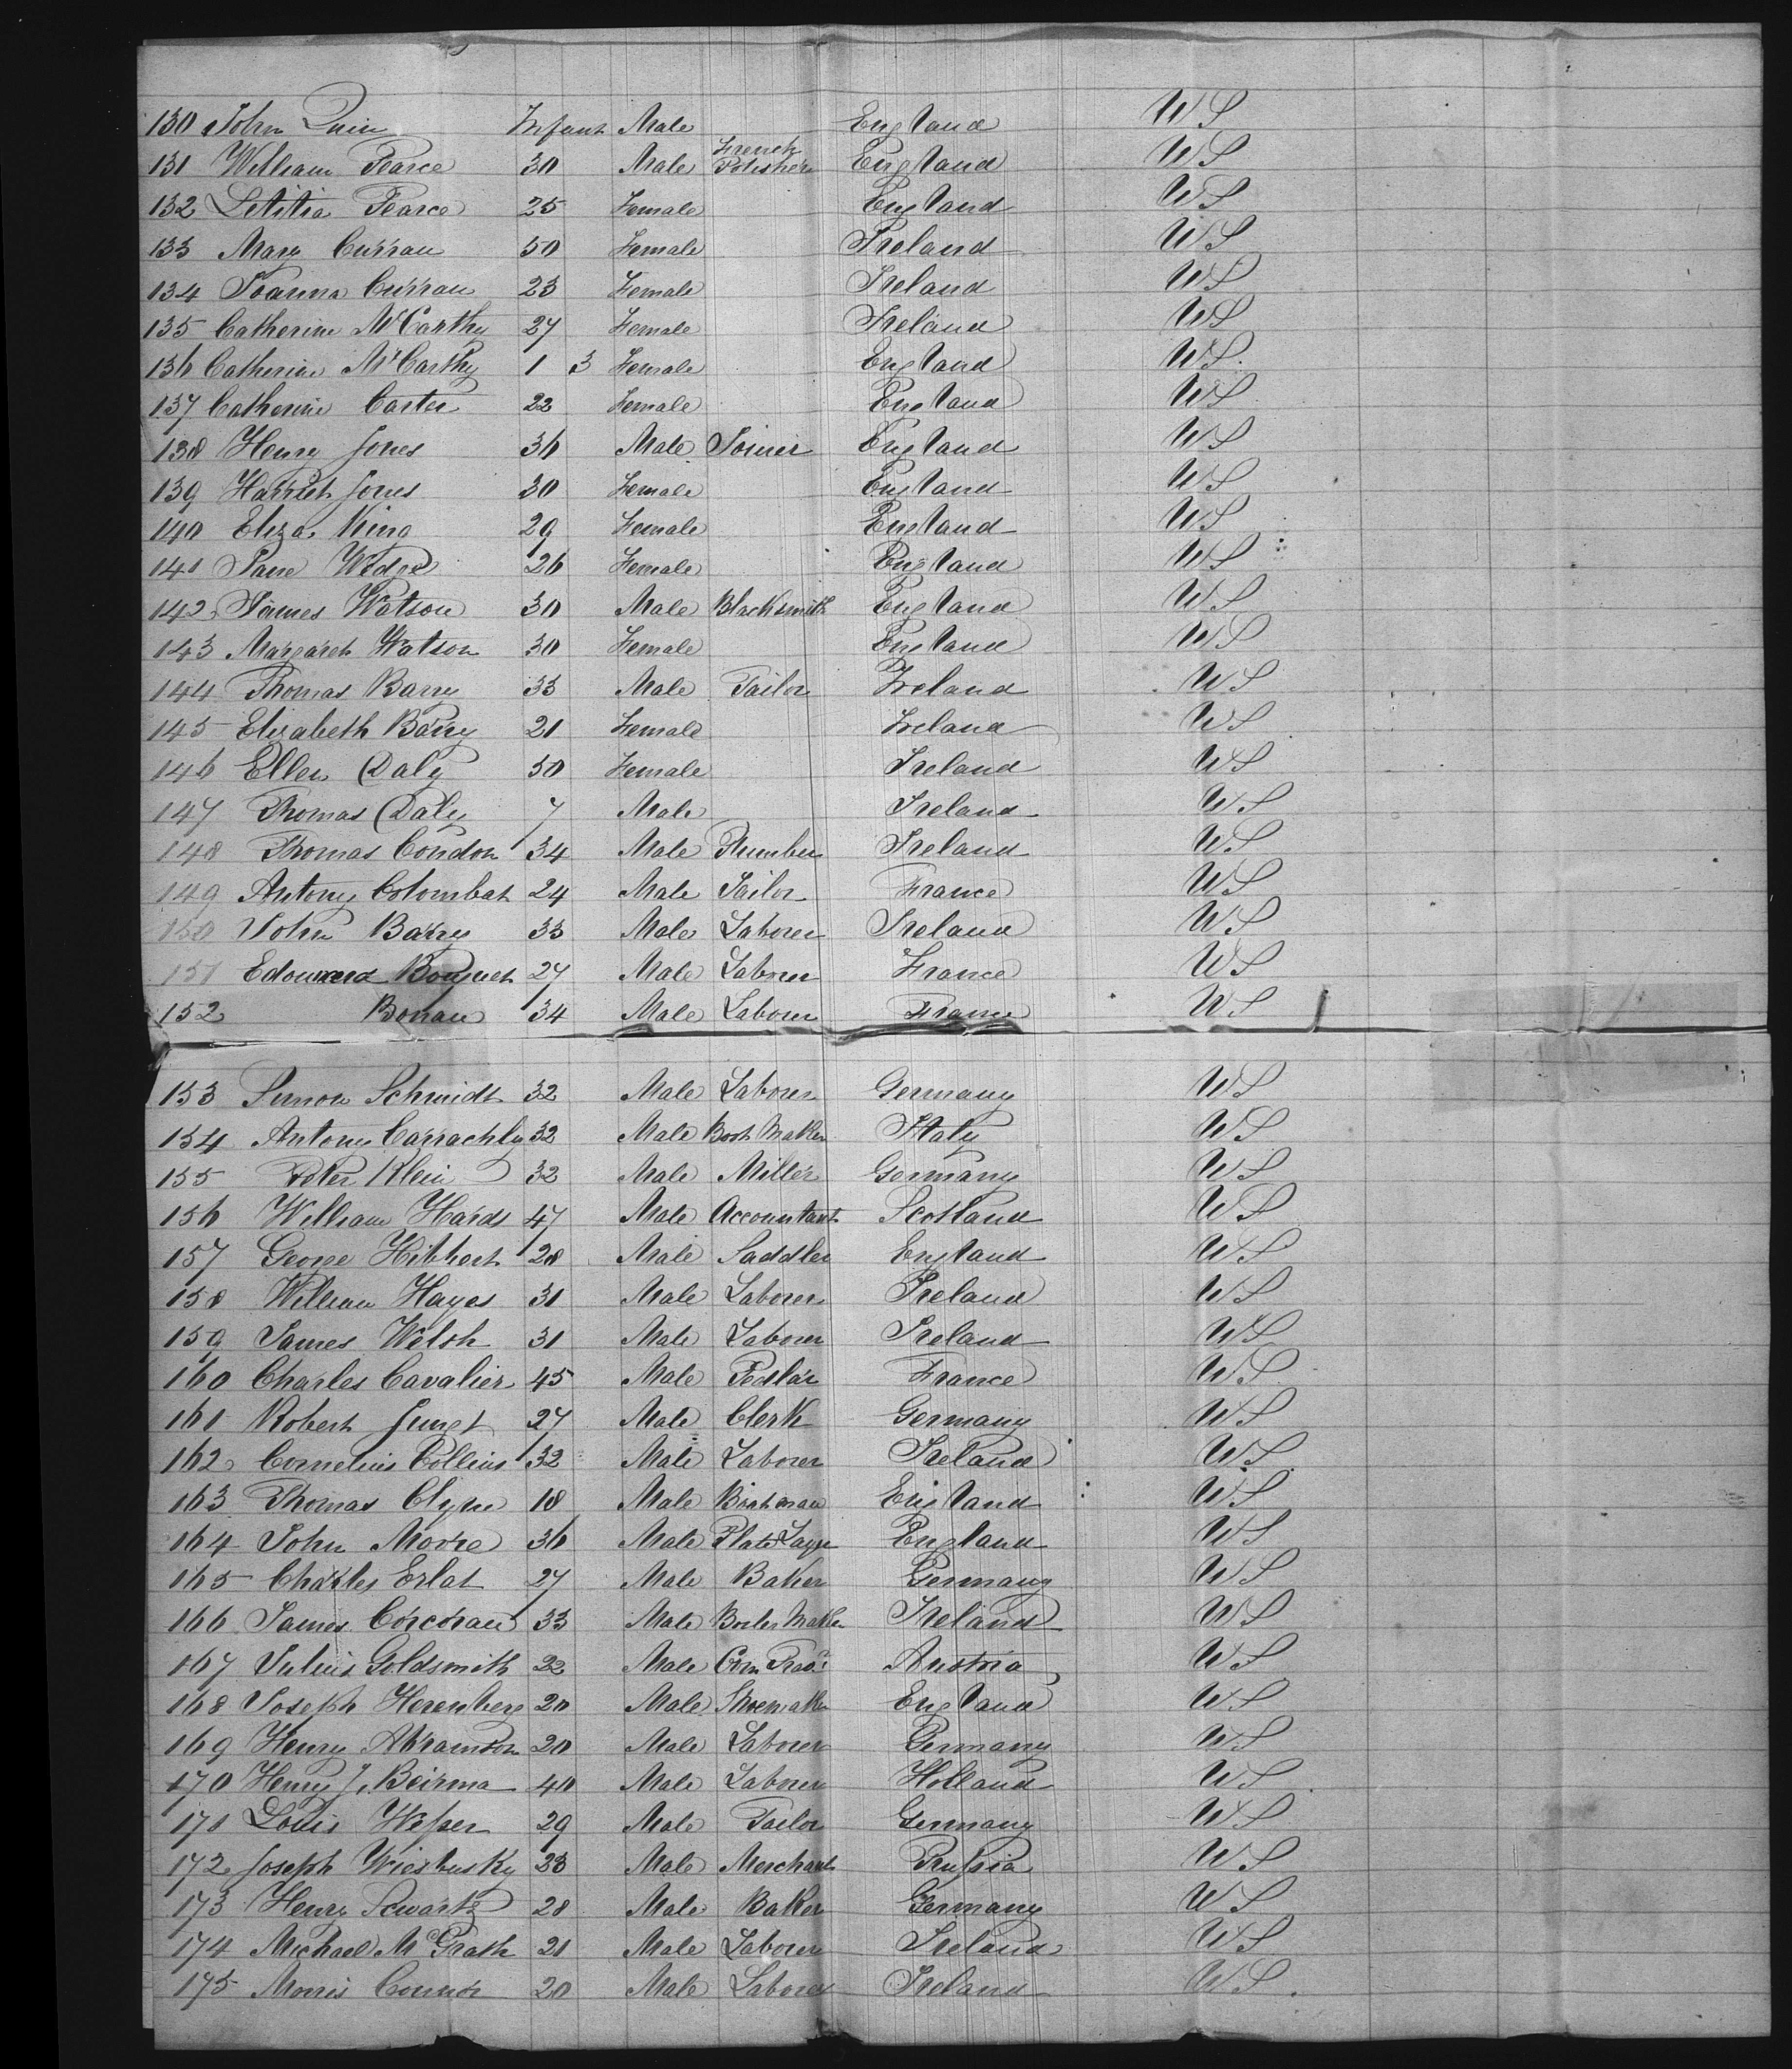 130 John Quin Infant Male England W S
131 William Pearce 30 Male French Polisher England W S
132 Letitia Pearce 25 Female England W S
133 Mary Curran 50 Female Ireland W S
134 Joanna Curran 23 Female Ireland W S
135 Catherine McCarthy 27 Female Ireland W S
136 Catherine McCarthy 1 3 Female England W S
137 Catherine Carter 22 Female England W S
138 Henry Jones 36 Male Joiner England W S
139 Harriet Jones 30 Female England W S
140 Eliza King 29 Female England W S
141 Jane 26 Female England W S
142 James Watson 30 Male Blacksmith England W S
143 Margaret Watson 30 Female England W S
144 Thomas Barry 33 Male Tailor Ireland W S
145 Elizabeth Barry 21 Female Ireland W S
146 Ellen Daly 30 Female Ireland W S
147 Thomas Daly 7 Male Ireland W S
148 Thomas Condon 34 Male Plumber Ireland W S
149 Antony Colombat 24 Male Tailor France W S
150 John Barry 33 Male Laborer Ireland W S
151 Edouard Bouquet 27 Male Laborer France W S
152 Bonau 34 Male Laborer France W S
153 Simon Schmidt 32 Male Laborer Germany W S
154 Antony 32 Male Boot Maker Italy W S
155 Peter Klein 32 Male Miller Germany W S
156 William Hards 47 Male Accountant Scotland W S
157 George Hibbert 28 Male Saddler England W S
158 William Hayes 31 Male Laborer Ireland W S
159 James Welsh 31 Male Laborer Ireland W S
160 Charles Cavalier 45 Male Pedlar France W S
161 Robert Junst 27 Male Clerk Germany W S
162 Cornelius Collins 32 Male Laborer Ireland W S
163 Thomas Clyne 18 Male England W S
164 John Moore 36 Male Plate Layer England W S
165 Charles Erlat 27 Male Baker Germany W S
166 James Corcoran 33 Male Boiler Maker Ireland W S
167 Julius Goldsmith 22 Male Com Trav.r Austria W S
168 Joseph Herenberg 20 Male Shoemaker England W S
169 Henry Abramson 20 Male Laborer Germany W S
170 Henry J. Beirma 40 Male Laborer Holland W S
171 Louis Wesser 29 Male Tailor Germany W S
172 Joseph Wiesbusky 33 Male Merchant Prussia W S
173 Henry Scwartz 28 Male Baker Germany W S
174 Michael McGrath 21 Male Laborer Ireland W S
175 Morris Connor 20 Male Laborer Ireland W S